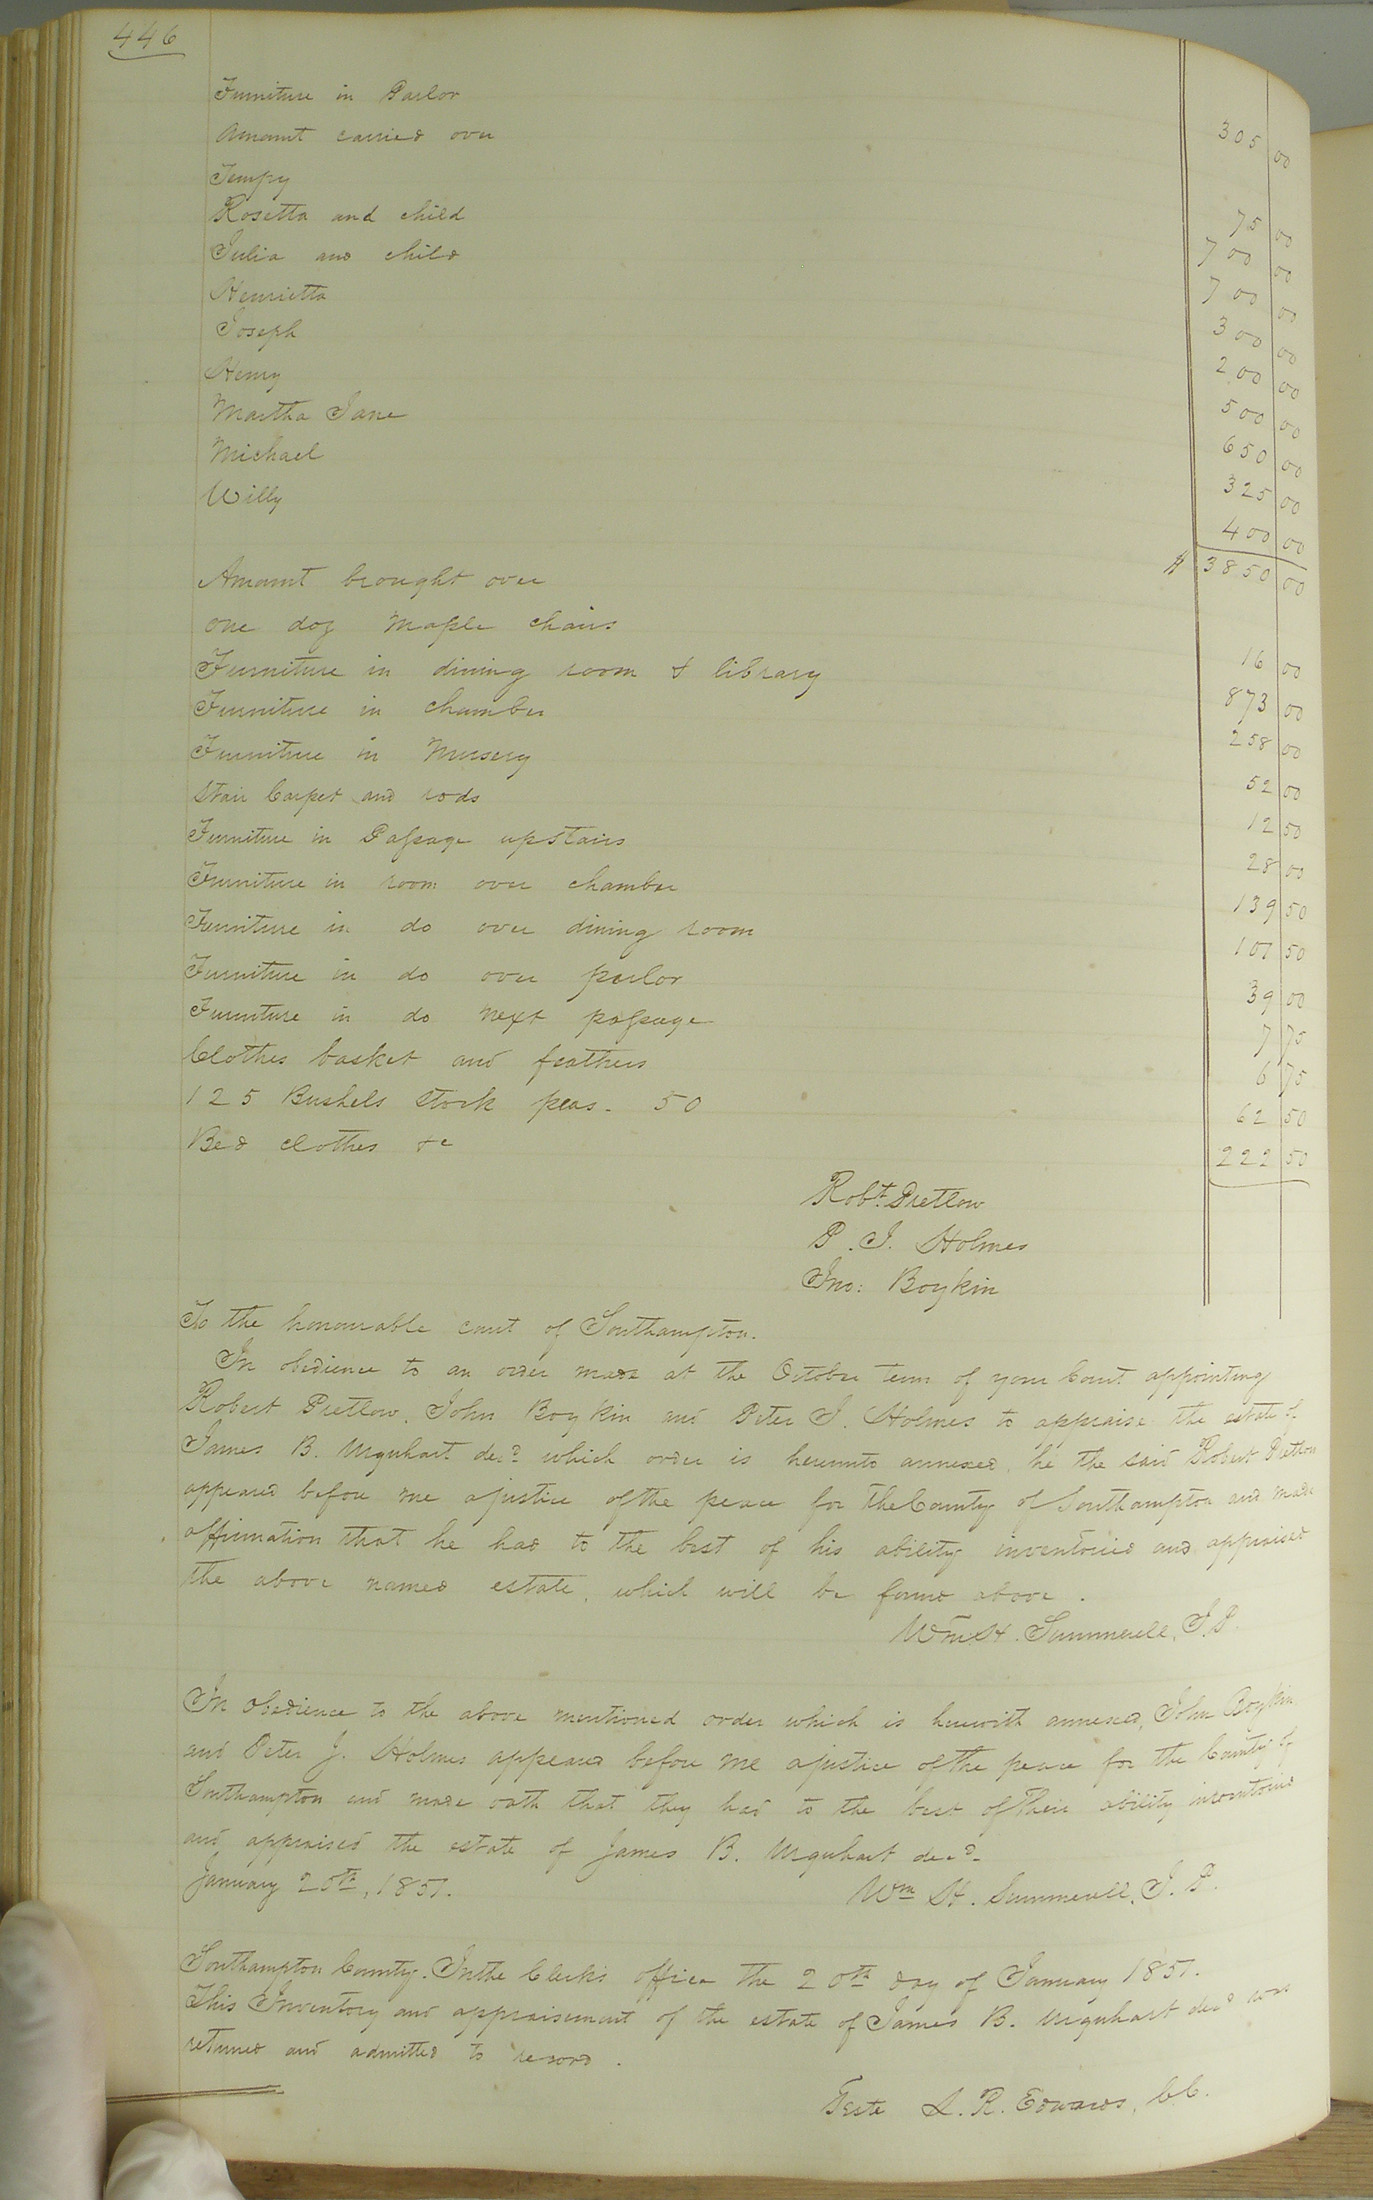 446
Furniture in Parlor 305 00
Amount carried over
Tempy 75 00
Rosetta and child 700 00
Julia and child 700 00
Henrietta 300 00
Joseph 200 00
Henry 500 00
Martha Jane 650 00
Michael 325 00
Willy 400 00
$ 3850 00
Amount brought over
one doz Maple chairs 16 00
Furniture in dining room & library 873 00
Furniture in chamber 258 00
Furniture in Nursery 52 00
Stair Carpet and rods 12 50
Furniture in Passage upstairs 28 00
Furniture in room over chamber 139 50
Furniture in do over dining room 101 50
Furniture in do over parlor 39 00
Furniture in do next passage 7 75
Clothes basket and feathers 6 75
125 Bushels Stock peas. 50 62 50
Bed clothes &c 222 50
Robt. Pretlow
P. J. Holmes
Jno: Boykin
To the honourable court of Southampton.
In obedience to an order made at the October term of your Court appointing
Robert Pretlow, John Boykin and Peter J. Holmes to appraise the estate of
James B. Urquhart decd which order is hereunto annexed, he the said Robert Pretlow
appeared before me a justice of the peace for the County of Southampton and made
affirmation that he had to the best of his ability inventoried and appraised
the above named estate, which will be found above.
Wm H. Summerell, J.P.
In obedience to the above mentioned order which is herewith annexed, John Boykin
and Peter J. Holmes appeared before me a justice of the peace for the County of
Southampton and made oath that they had to the best of their ability inventoried
and appraised the estate of James B. Urquhart decd.
January 20th, 1851. Wm H. Summerell, J. P.
Southampton County. In the Clerk's office the 20th day of January 1851.
This Inventory and appraisement of the estate of James B. Urquhart decd was
returned and admitted to record.
Teste L. R. Edwards, C.C.